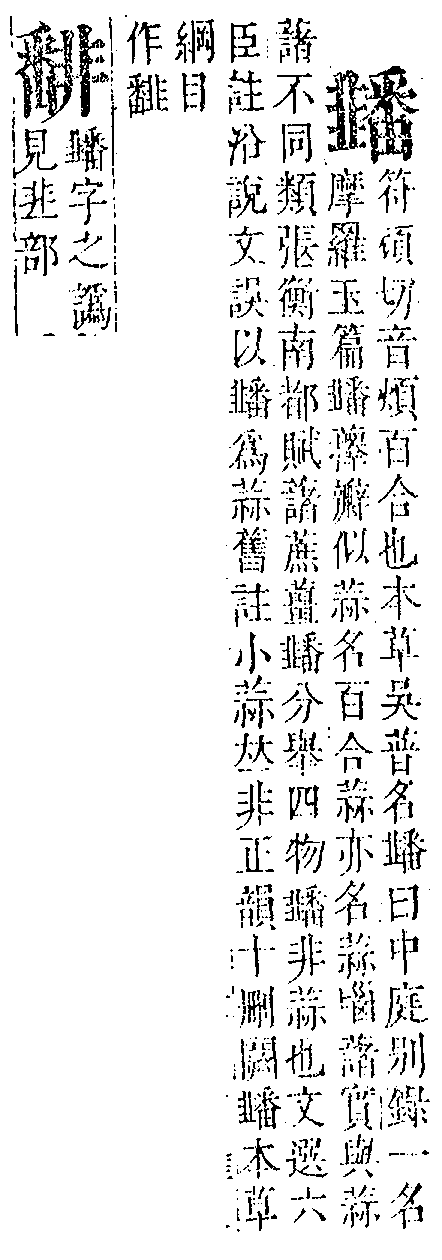 䪛符頑切音煩百合也本草吳普名䪛曰中庭別錄一名
摩羅玉篇䪛瓣似蒜名百合蒜亦名蒜腦藷實與蒜
藷不同類張衡南都賦藷蔗薑䪛分舉四物䪛非蒜也文選六
臣註沿說文誤以䪛爲蒜舊註小蒜𠀤非正韻十刪闕䪛本草
綱目
作
䪛字之譌
見韭部